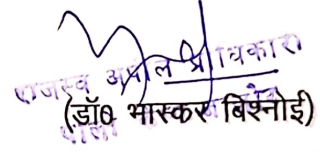 राजस्व अपील प्राधिकारी
(डॉ0 भास्कर बिश्नोई)